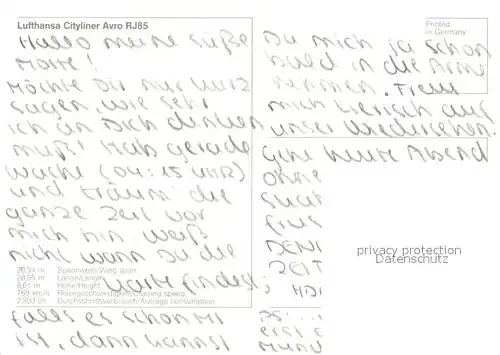 Lufthansa Cityliner Avro RJ85
Hallo meine süße
Motte!
Möchte Dir nur kurz
sagen, wie sehr
ich an Dich denken
muß! Hab gerade
Wache (04:15 UHR)
und träum die
ganze Zeit vor
mich hin. Weiß
nicht wann Du die
Karte findest,
26,34 m Spannweite/Wing span
28,55 m Länge/Length
8,61 m Höhe/Height
760 km/h Reisegeschwindigkeit/Cruising speed
2.300 l/h Durchschnittsverbrauch/Average consumption
falls es schon Mi
ist, dann kannst
Printed
in Germany
Du mich ja schon
bald in die Arme
nehmen. Freu
mich tierisch auf
unser Wiedersehen.
Geh heute Abend
ohne
privacy protection
Datenschutz
ZEIT
PS:
erst